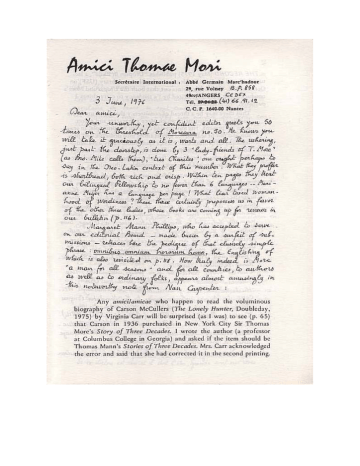 Amici Thomae Mori
Secrétaire International : Abbé Germain Marc'hadour
29, rue Volney B.P. 858
49005 ANGERS CEDEX
Tél. (41) 66.11.12
C. C. P. 1640-60 Nantes
3 June, 1976
Dear amici,
Your unworthy, yet confident editor greets you 50
times on the threshold of Moreana no. 50. He knows you
will take it graciously as it is, warts and all. The
just past the doorstep, is done by 3 "lady friends of T. More"
(as Mrs. Mike calls them), "tres Charites", one ought perhaps to
say in the context of this number. What they proffer
is shortbread, both rich and crisp. Within ten pages they treat
our bilingual fellowship to no fewer than 6 languages -
has a language per page! What
hood of weakness? then these certainly in favor
of the other three ladies, whose books are coming up for review in
our bulletin (p. 46).
Margaret Mann Phillips, who has accepted to serve
on our editorial Board - made busier by a surfeit of sub-
missions - retraces here the pedigree of that cleverly simple
phrase: omnibus omnium horarum homo, the Englishing of
which is also revisited on p. 88. How truly indeed is More
"a man for all seasons" and for all countries, to authors
as well as to ordinary folks, appears almost amusingly in
this noteworthy note from Nan Carpenter:
Any amici/amicae who happen to read the voluminous
biography of Carson McCullers (The Lonely Hunter, Doubleday,
1975) by Virginia Carr will be surprised (as I was) to see (p. 65)
that Carson in 1936 purchased in New York City Sir Thomas
More's Story of Three Decades. I wrote the author (a professor
at Columbus College in Georgia) and asked if the item should be
Thomas Mann's Stories of Three Decades. Mrs. Carr acknowledged
the error and said that she had corrected it in the second printing.